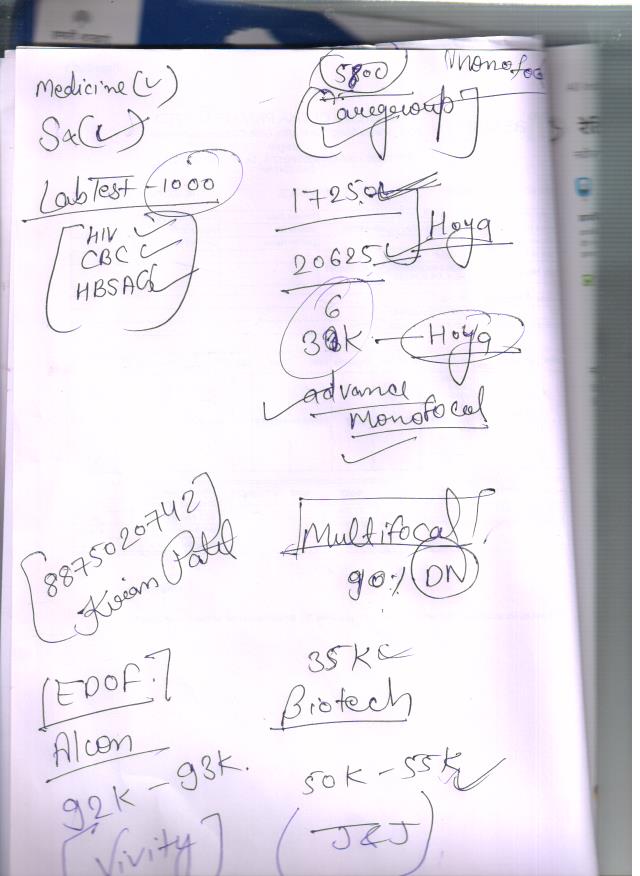 Medicine (✓)
Sx (✓)
Lab Test - 1000
HIV ✓
CBC ✓
HBSAG ✓
5800 Monofoc
Caregroup
17250
20625
Hoya
6
K - Hoya
advance
Monofocal
8875020742
Kiran Patel
Multifocal
90% DN
35K
Biotech
[EDOF]
Alcon
92K - 93K.
50K - 55K ✓
[Vivity]
(J&J)